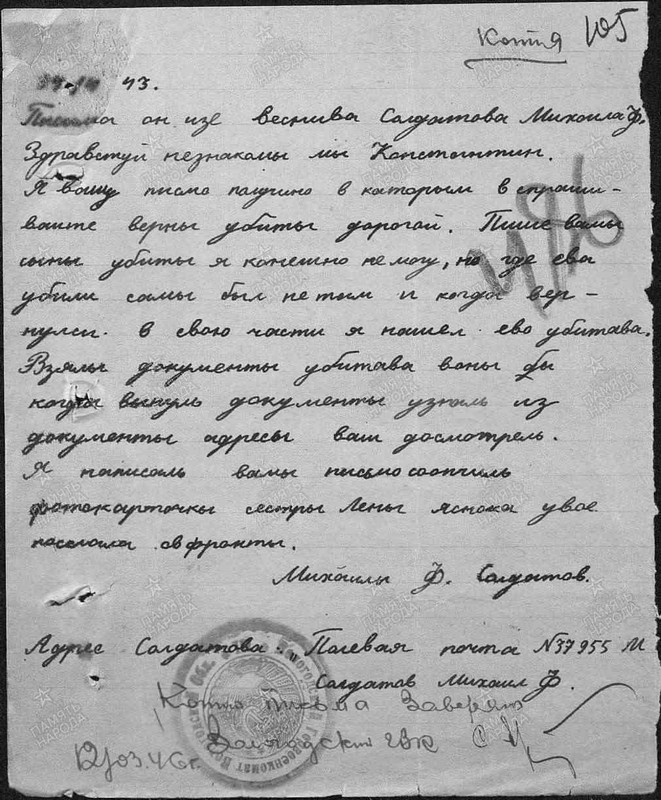 Копія 105
43.
Письма он изе веснива Салдатова Михаила Ф.
Здравствуй незнакомы мы Константин.
Я вашу письмо палучино в каторым в спраши-
ваите верны убиты дарогай. Пише вамы
сыны убиты я конешно не могу, но где ева
убили самы был не тим и когда вер-
нулси. в свою части я нашел ево убитава.
Взялы документы убитава воны бы
когды вынуль документы узналь из
документы адресы ваш досмотрель.
Я написаль вамы письмо соопчиль
фотокарточкы сестры Лены
послала с фронты.
Михаилы Ф. Салдатов.
Адрес Салдатова. Палевая почта N 37955 М
Салдатов Михаил Ф.
Копия письма Заверят
Вологодский ГВК
12/03.46г.